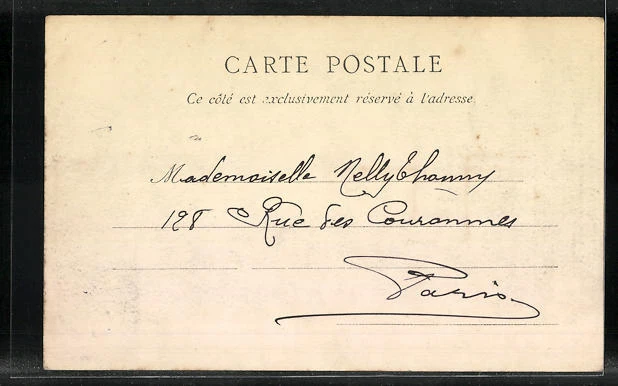 CARTE POSTALE
Ce côté est exclusivement réservé à l'adresse.
Mademoiselle Nelly Thommy
128 Rue des Couronnes
Paris